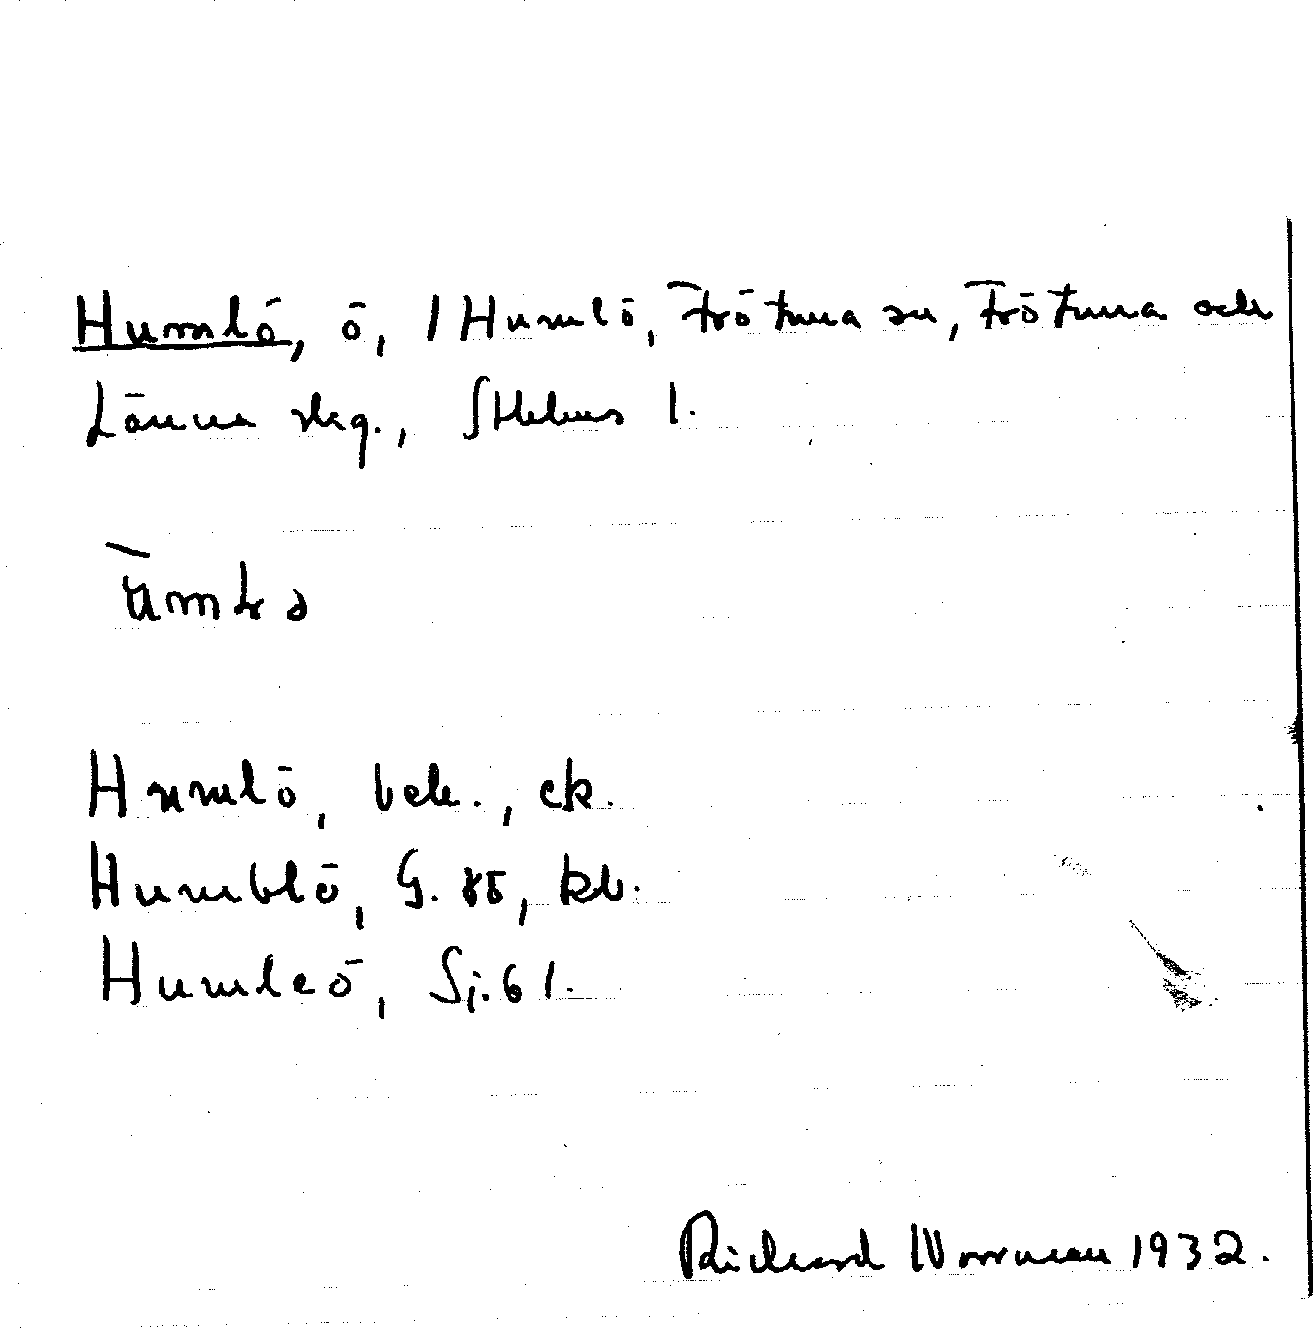 Humlö, ö, 1 Humlö, Frötuna sn, Frötuna och
Länna skg., Sthlms l.
Humlö, bek., ek.
Humblö, G. 85, kb.
Humleö, Sj. 61.
Richard Norrman 1932.